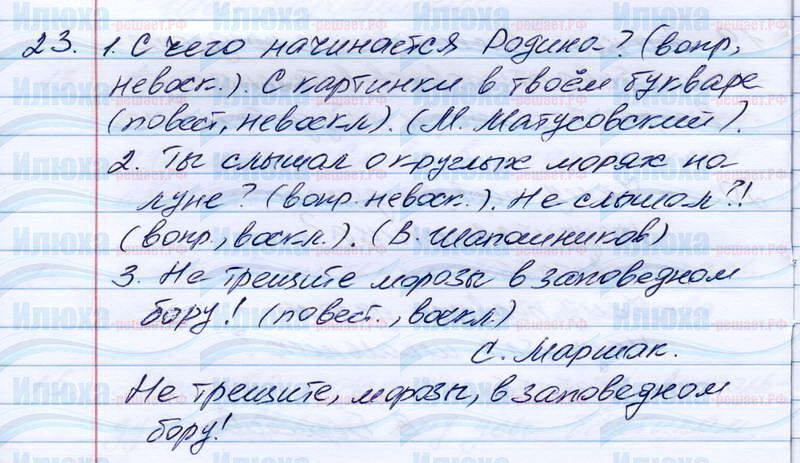 23. 1. С чего начинается Родина? (вопр,
невоск.). С картинки в твоём букваре
(повест, невоскл). (М. Матусовский).
2. Ты слышал о круглых морях на
луне? (вопр. невоск.). Не слышал?!
(вопр., воскл.). (В. Шапошников)
3. Не трещите морозы в заповедном
бору! (повест., воскл.)
С. Маршак.
Не трещите, морозы, в заповедном
бору!